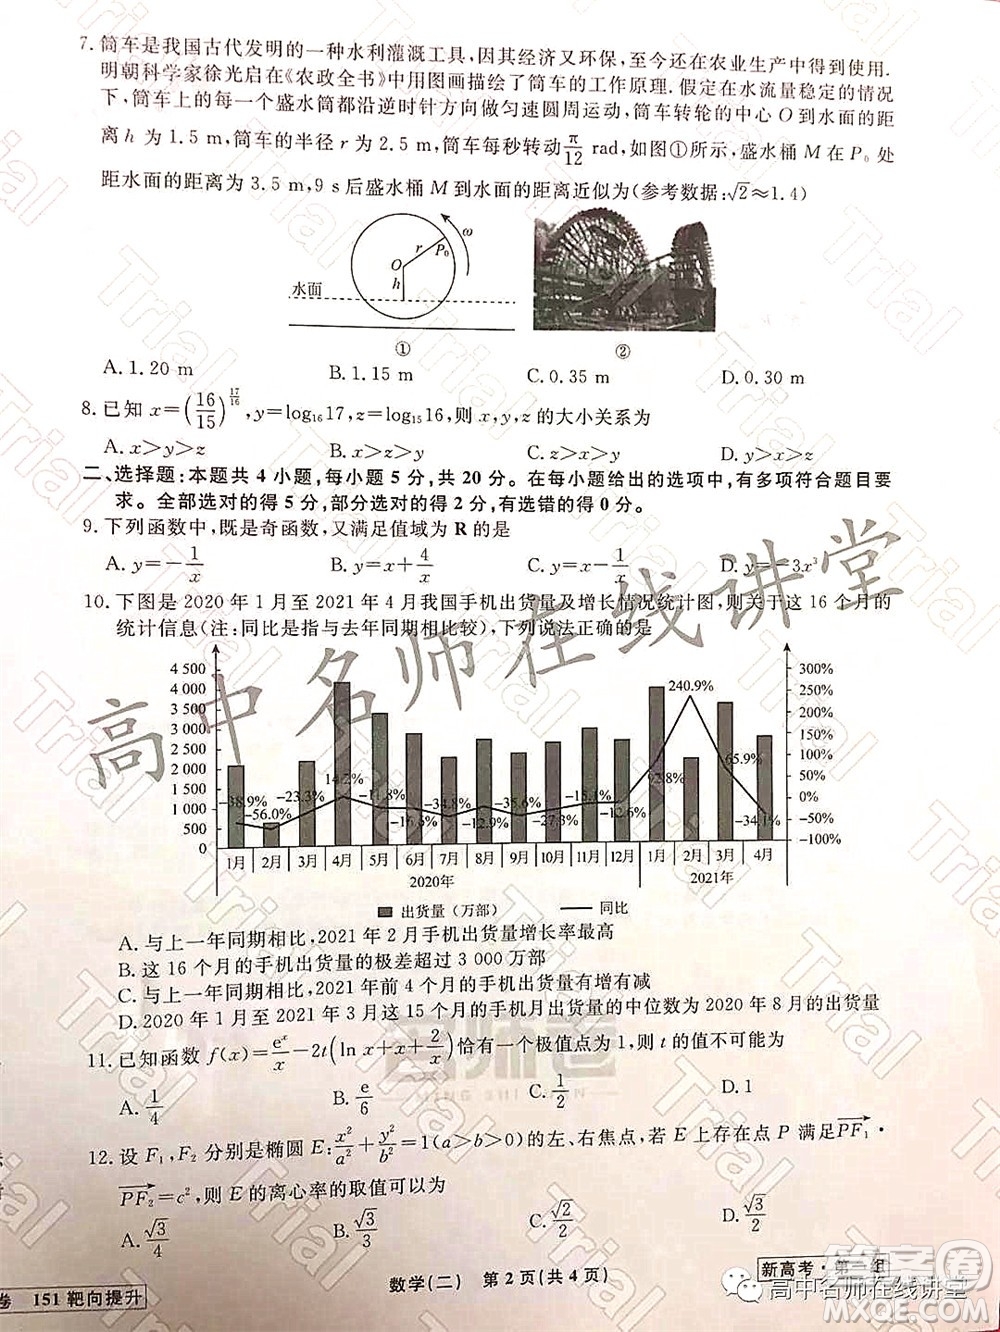 7. 筒车是我国古代发明的一种水利灌溉工具,因其经济又环保,至今还在农业生产中得到使用.
明朝科学家徐光启在《农政全书》中用图画描绘了筒车的工作原理.假定在水流量稳定的情况
下,筒车的每一个盛水筒都沿逆时针方向做匀速圆周运动,筒车转轮的中心O到水面的距
离h为1.5 m,筒车的半径r为2.5 m,筒车每秒转动π/12 rad,如图①所示,盛水桶M在P₀处
距水面的距离为3.5 m,9 s后盛水桶M到水面的距离近似为(参考数据:√2≈1.4)
ω
r
P₀
O
h
水面
①
②
A. 1.20 m B. 1.15 m C. 0.35 m D. 0.30 m
8. 已知x=(16/15)^(17/16),y=log₁₆17,z=log₁₅16,则x,y,z的大小关系为
A. x>y>z B. x>z>y C. z>x>y D. z>y>x
二、选择题:本题共4小题,每小题5分,共20分. 在每小题给出的选项中,有多项符合题目要
求. 全部选对的得5分,部分选对的得2分,有选错的得0分.
9. 下列函数中,既是奇函数,又满足值域为R的是
A. y=-1/x B. y=x+4/x C. y=x-1/x D. y=-3x³
10. 下图是2020年1月至2021年4月我国手机出货量及增长情况统计图,则关于这16个月的
统计信息(注:同比是指与去年同期相比较),下列说法正确的是
4 500
4 000
3 500
3 000
2 500
2 000
1 500
1 000
500
0
300%
250%
200%
150%
100%
50%
0%
-50%
-100%
-38.9% -56.0% -23.3% 14.2% -11.8% -16.6% -34.8% -12.9% -35.6% -27.3% -15.1% -12.6% 92.8% 240.9% 65.9% -34.1%
1月 2月 3月 4月 5月 6月 7月 8月 9月 10月 11月 12月 1月 2月 3月 4月
2020年 2021年
出货量(万部) 同比
A. 与上一年同期相比,2021年2月手机出货量增长率最高
B. 这16个月的手机出货量的极差超过3 000万部
C. 与上一年同期相比,2021年前4个月手机出货量有增有减
D. 2020年1月至2021年3月这15个月的手机月出货量的中位数为2020年8月的出货量
11. 已知函数f(x)=eˣ/x-2t(ln x+x+2/x)恰有一个极值点为1,则t的值不可能为
A. 1/4 B. e/6 C. 1/2 D. 1
12. 设F₁,F₂分别是椭圆E:x²/a²+y²/b²=1(a>b>0)的左、右焦点,若E上存在点P满足PF₁·
PF₂=c²,则E的离心率的取值可以为
A. √3/4 B. √3/3 C. √2/2 D. √3/2
数学(二) 第2页(共4页)
新高考·第二组
卷 151 靶向提升
高中名师在线讲堂
高中名师在线讲堂
名师卷
MING SHI JUAN
答案卷
MXQE.COM
Trial